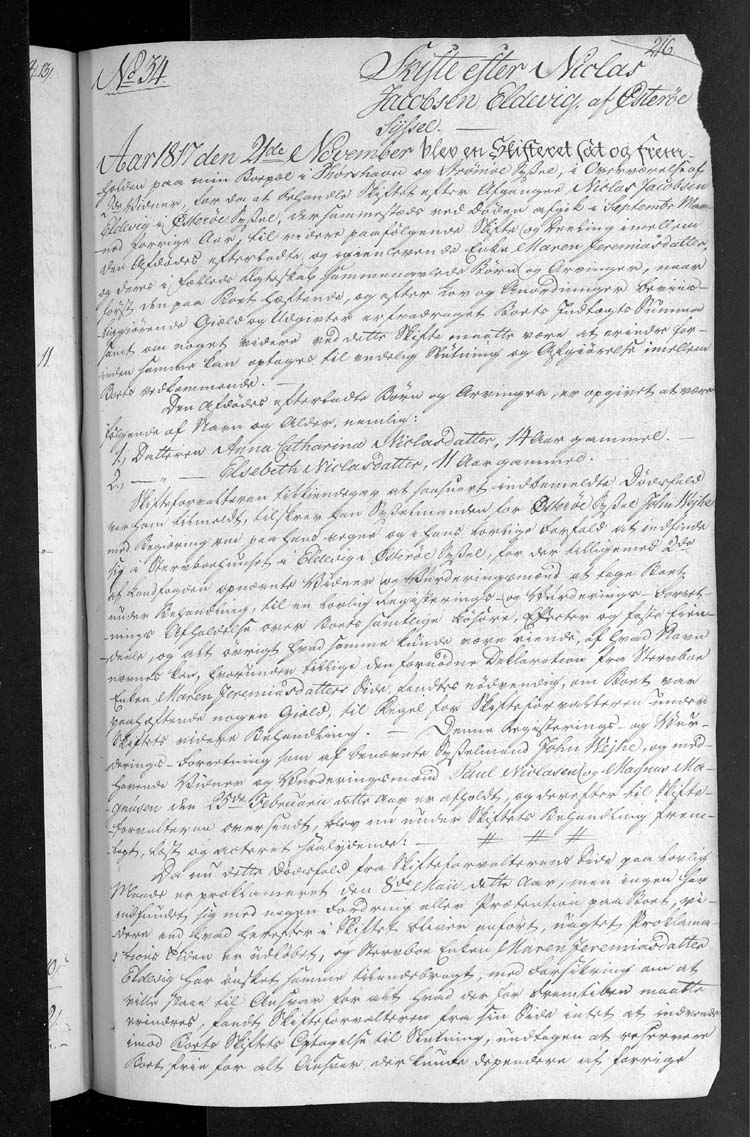 216
No 34. Skifte efter Niclas
Jacobsen Eldevig, af Österöe
Syssel. —
Aar 1817 den 21de November blev en Skifteret sat og frem-
holden paa min Bopæl i Thorshavn og Strömöe Syssel, i Overværelse af
2de Vidner, for da at behandle Skiftet efter Afgangne Niclas Jacobsen
Eldevig i Österöe Syssel, der sammesteds ved Döden afgik i Septembr Maa-
ned forrige Aar, til videre paafölgende Skifte og Deeling imellem
den Afdödes efterladte, og igienlevende Enke Maren Jeremiasdatter,
og deres i fælleds Egteskab sammenavlede Börn og Arvinger, naar
först den paa Boet hæftende, og efter Lov og Anordninger beviis-
liggiörende Giæld og Udgivter er fradraget Boets Indtægts Summa
samt om noget videre ved dette Skifte maatte være at erindre for-
inden samme kan optages til endelig Slutning og Afgiörelse imellem
Boets Vedkommende: —
Den Afdödes efterladte Börn og Arvinger, er opgivet at være
fölgende af Navn og Alder, nemlig:
1, Datteren Anna Catharina Niclasdatter, 14 Aar gammel. —
2, — " — Elsebeth Niclasdatter, 11 Aar gammel. —
Skifteforvalteren tilkiendegav at saasnart indbemeldte Dödsfald
var ham tilmeldt, tilskrev han Sysselmanden for Österöe Syssel John Wejhe
med Begiæring om paa hans vegne og i hans lovlige Forfald at indfinde
sig i Stervboehuuset i Eldevig i Österöe Syssel, for der tilligemed 2de
af Landfogden opnævnte Vidner og Vurderingsmænd at tage Boet
under Behandling, til en lovlig Registerings- og Vurderings-Forret-
nings Afholdelse over Boets samtlige Lösöre, Effecter og faste Eien-
deele, og alt övrigt hvad samme kunde være eiende, af hvad Navn
nævnes kan, hvorunder tillige den fornödne Declaration fra Stervboe
Enken Maren Jeremiasdatters Side, fandtes nödvendig, om Boet var
paahæftende nogen Giæld, til Regel for Skifteforvalteren under
Skiftets videre Behandling. — Denne Registerings- og Vur-
derings-Forretning som af benævnte Sysselmand John Wejhe, og med-
havende Vidner og Vurderingsmænd Paul Niclasen og Magnus Ma-
gnusen den 25de Februarii dette Aar er afholdt, og derefter til Skifte-
forvalteren oversendt, blev nu under Skiftets Behandling frem-
lagt, læst og acteret saalydende: — # # #
Da nu dette Dödsfald fra Skifteforvalterens Side paa lovlig
Maade er proklameret den 8de Maii dette Aar, men ingen har
indfundet sig med nogen Fordring eller Prætention paa Boet, vi-
dere end hvad herefter i Skiftet bliver anfört, uagtet Proklama-
tions Tiden er udlöbet, og Stervboe Enken Maren Jeremiasdatter
Eldevig har önsket samme tilendebragt, med Forsikring om at
ville staae til Ansvar for alt hvad der for Fremtiden maatte
erindres, fandt Skifteforvalteren fra sin Side intet at indvende
imod Boets Skiftets Optagelse til Slutning, undtagen at reservere
Boet frie for alt Ansvar, der kunde dependere af forrige